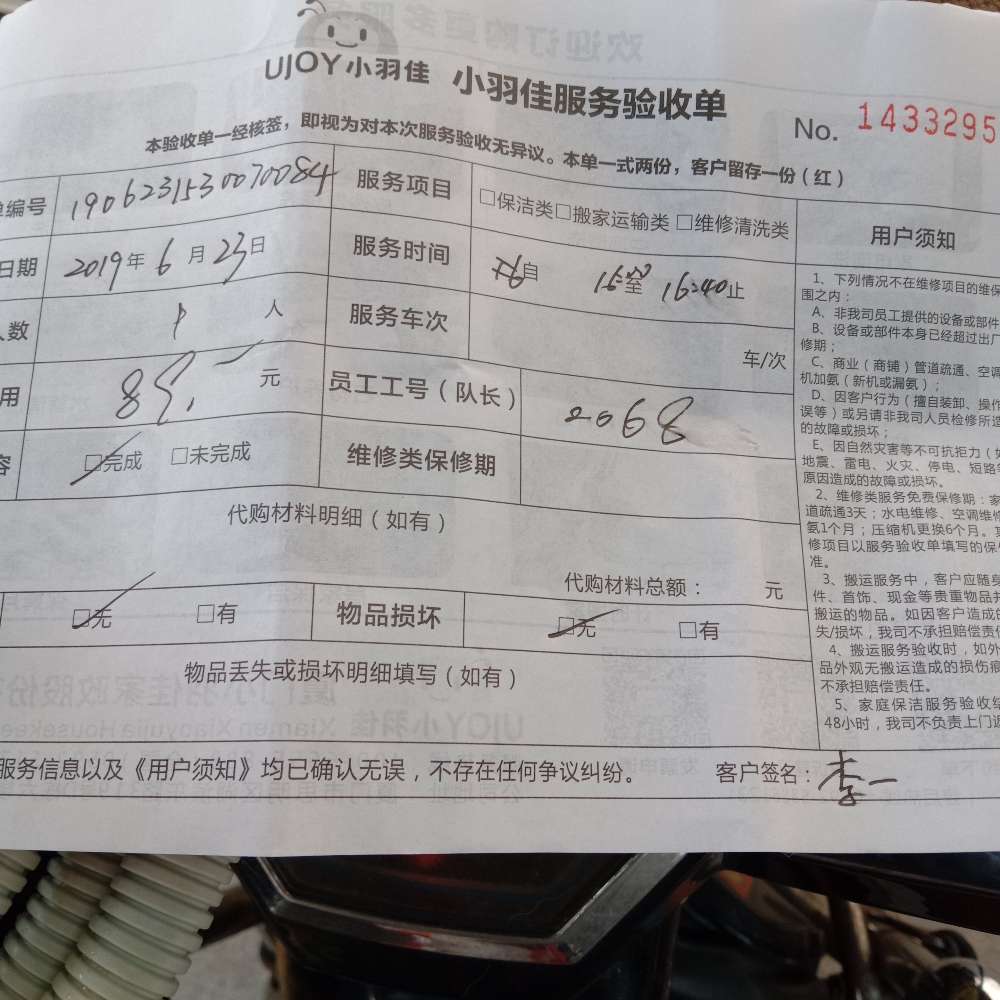 UJOY小羽佳 小羽佳服务验收单
No. 1433295
本验收单一经核签，即视为对本次服务验收无异议。本单一式两份，客户留存一份（红）
单编号 1906231530070084 服务项目 □保洁类□搬家运输类 □维修清洗类
日期 2019年6月23日 服务时间 自 16:00至 16:40止
人数 1 人 服务车次 车/次
用 元 员工工号（队长）
容 □完成 □未完成 维修类保修期
代购材料明细（如有）
代购材料总额： 元
□无 □有 物品损坏 □无 □有
物品丢失或损坏明细填写（如有）
服务信息以及《用户须知》均已确认无误，不存在任何争议纠纷。 客户签名：李一
用户须知
1、下列情况不在维修项目的维保
围之内：
A、非我司员工提供的设备或部件
B、设备或部件本身已经超过出厂
修期；
C、商业（商铺）管道疏通、空调
机加氨（新机或漏氨）；
D、因客户行为（擅自装卸、操作
误等）或另请非我司人员检修所造
的故障或损坏；
E、因自然灾害等不可抗拒力（如
地震、雷电、火灾、停电、短路等
原因造成的故障或损坏。
2、维修类服务免费保修期：家
道疏通3天；水电维修、空调维修
氨1个月；压缩机更换6个月。其
修项目以服务验收单填写的保修
准。
3、搬运服务中，客户应随身
件、首饰、现金等贵重物品并
搬运的物品。如因客户造成的
失/损坏，我司不承担赔偿责任
4、搬运服务验收时，如外
品外观无搬运造成的损伤痕
不承担赔偿责任。
5、家庭保洁服务验收结
48小时，我司不负责上门返